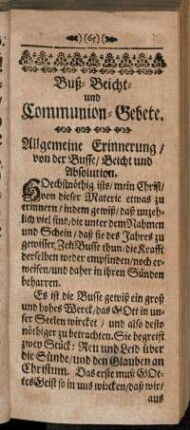 (65)
Buß- Beicht-
und
Communion-Gebete.
Allgemeine Erinnerung /
von der Busse / Beicht und
Absolution.
HOechstnöthig ists / mein Christ /
von dieser Materie etwas zu
erinnern / indem gewiß / daß unzeh-
lich viel sind, die unter dem Nahmen
und Schein / daß sie des Jahres zu
gewisser Zeit Busse thun, die Krafft
derselben weder empfinden / noch er-
weisen / und daher in ihren Sünden
beharren.
Es ist die Busse gewiß ein groß
und hohes Werck / das GOtt in un-
ser Seelen wircket / und also desto
nöthiger zu betrachten. Sie begreifft
zwey Stück: Reu und Leid über
die Sünde / und den Glauben an
Christum. Das erste muß GOt-
tes Geist so in uns wircken / daß wir /
aus